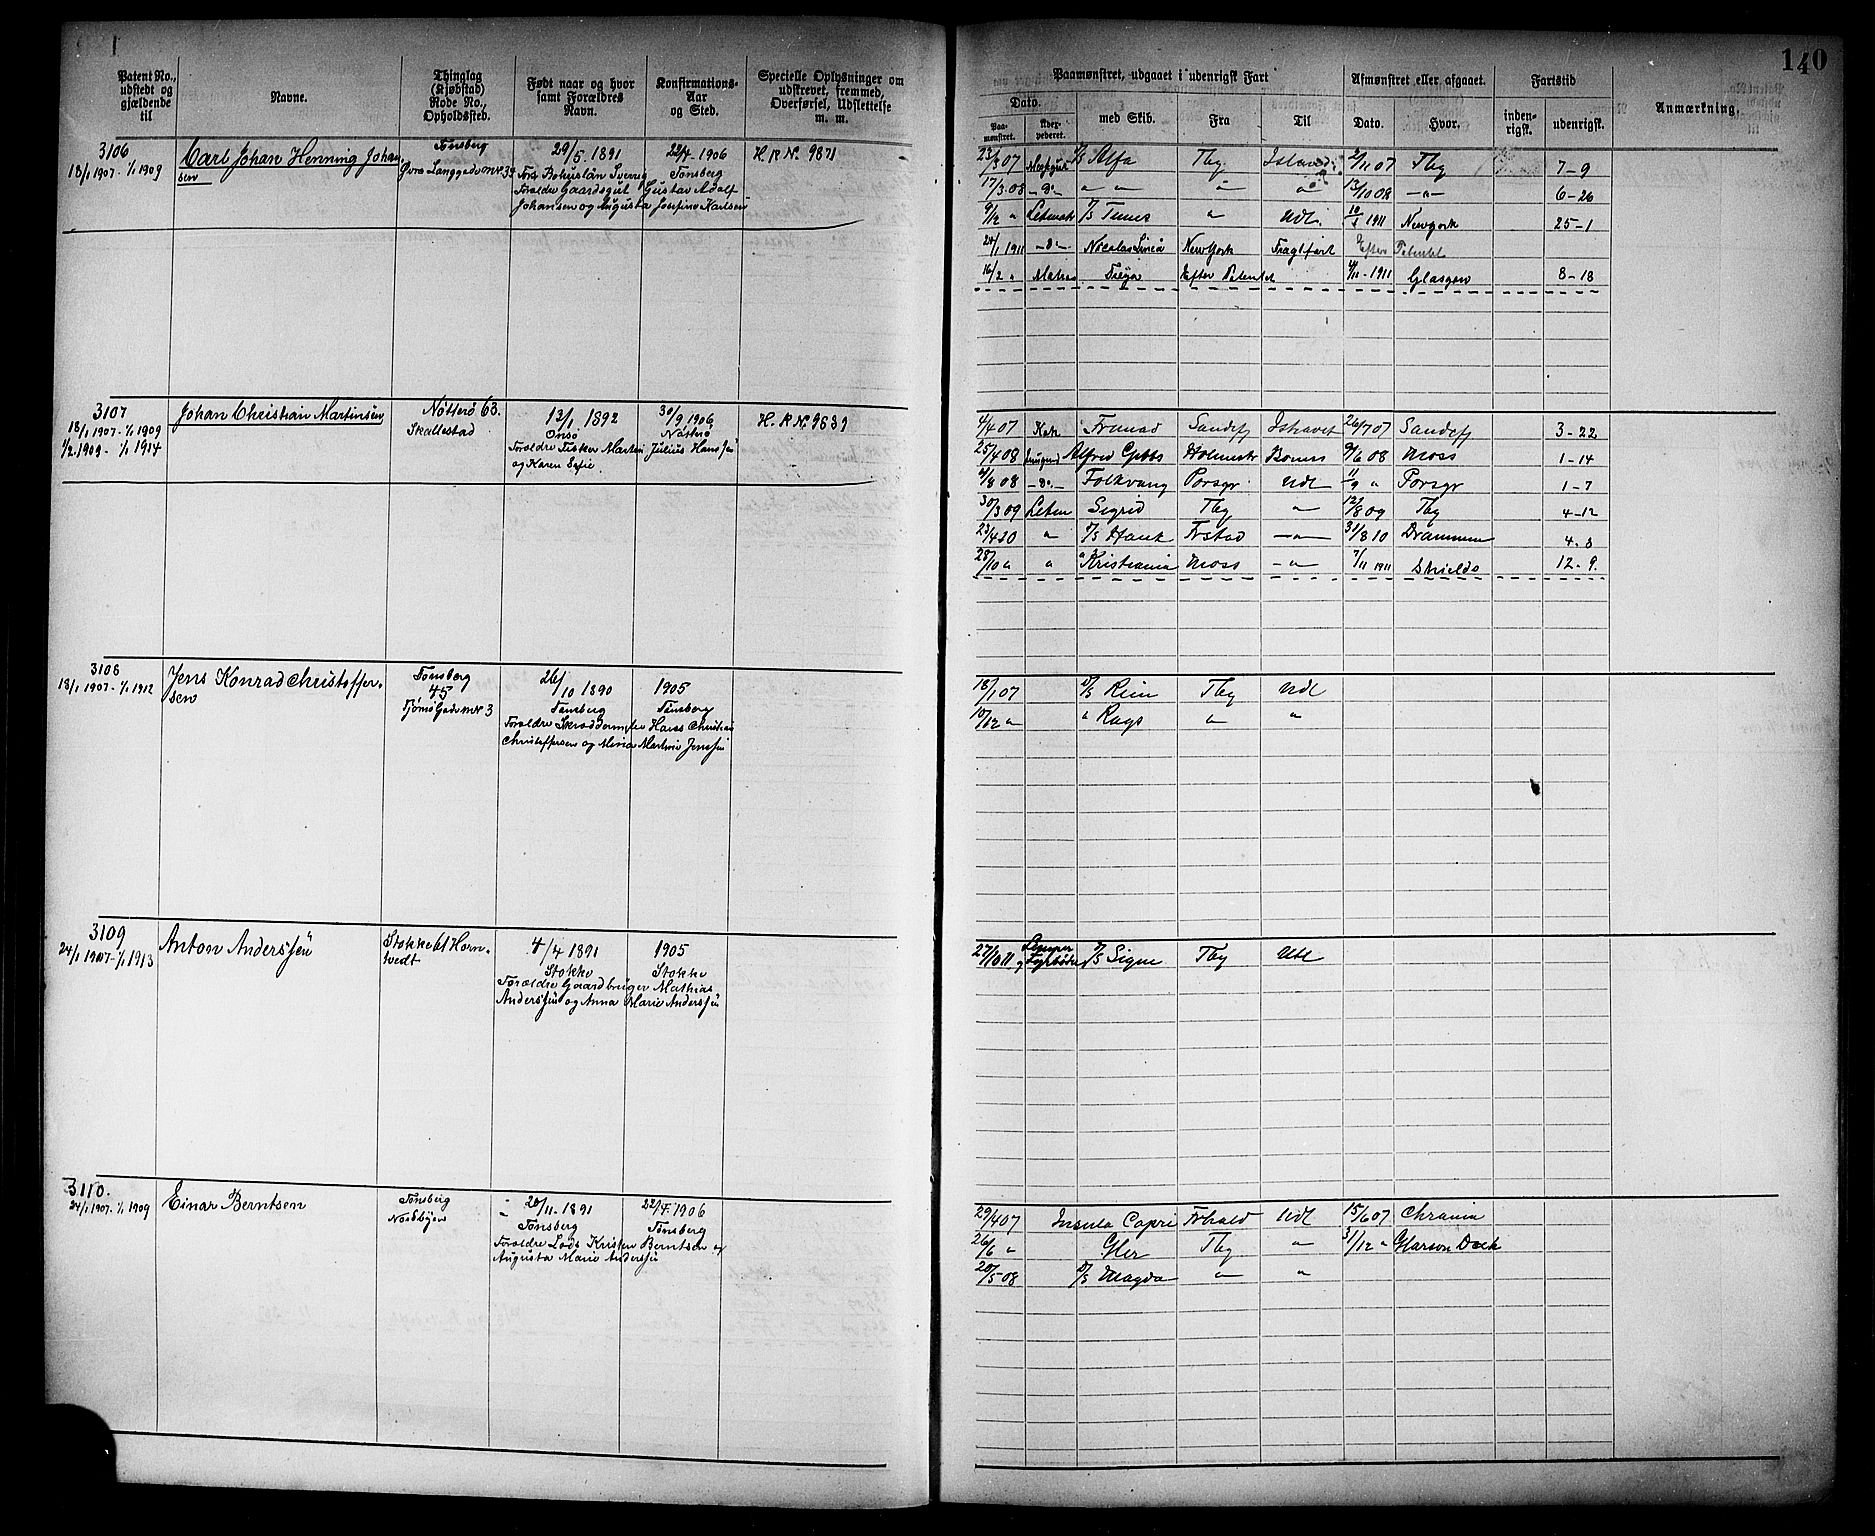 140
Patent No., udstedt og gjældende til
Navne.
Thinglag (Kjøbstad) Rode No., Opholdssted.
Født naar og hvor samt Forældres Navn.
Konfirmations-Aar og Sted.
Specielle Oplysninger om udskrevet, fremmed, Overførsel, Udslettelse m. m.
Paamønstret, udgaaet i udenrigsk Fart
Afmønstret eller afgaaet.
Fartstid
Anmærkning.
Dato.
Paamønstret.
med Skib.
Fra
Til
Dato.
Hvor.
indenrigsk.
udenrigsk.
3106
18/1 1907 - 1/1 1909
Carl Johan Henning Johansen
Tønsberg
29/5 1891
Forældre Gaardsgut Gustav Adolf
Johansen og Augusta Josefine Karlsen
22/4 1906
Tønsberg
H. R No. 9871
23/3 07 S/S Alfa Tbg 2/11 07 Tbg 7-9
17/3 08 -d°- " " " " 13/10 08 -"- 6-26
9/12 " Tbg 1911 Newyork 25-1
24/1 1911 -d°- Newyork Fragtfart Efter Patentet
16/2 " Efter Patentet 4/11 - 1911 Glasgow 8-18
3107
18/1 1907 - 1/1 1909
1/2 1909 - 1/1 1914
Johan Christian Martinsen
Nøtterø 63.
Skallestad
13/1 1892
Onsø
Forældre Fisker Martin Julius Hanssen
og Karen Sofie
30/9 1906
Nøtterø
H. R No. 9839
4/4 07 Kok Sandefj Ishavet 26/7 07 Sandefj 3-22
25/4 08 Alfred Gibbs Holmestr 9/6 08 Moss 1-14
4/8 08 -d°- Folkvang Porsgr. Udl 11/9 " Porsgr 1-7
30/3 09 Sigrid Tbg " 12/8 09 Tbg 4-12
" S/S Hauk Frstad -"- 31/8 10 Drammen 4-8
28/10 " " " Kristiania Moss -"- 7/11 1911 Shields 12-9.
3108
18/1 1907 - 1/1 1912
Jens Konrad Christoffersen
Tønsberg
45
Tjømø Gade No 3
26/10 1890
Tønsberg
Forældre Skræddermester Hans Christian
Christoffersen og Martine Jenssen
1905
Tønsberg
18/1 07 S/S Rein Tbg Udl
10/12 " " " "
3109
24/1 1907 - 1/1 1913
Anton Anderssen
Stokke 61 Hornvedt
4/4 1891
Stokke
Forældre Gaardbruger Mathias
Anderssen og Anna Marie Anderssen
1905
Stokke
27/10 11 S/S Signe Tbg Udl
3110.
24/1 1907 - 1/1 1909
Einar Berntsen
Tønsberg
Nordbyen
20/11 1891
Tønsberg
Forældre Lods Kristen Berntsen og
Augusta Marie Anderssen
22/4 1906
Tønsberg
29/4 07 Insula Capri Frhald Udl 15/6 07 Chrania
26/6 " Gler Tbg " 31/12 "
20/5 08 S/S Magda " "